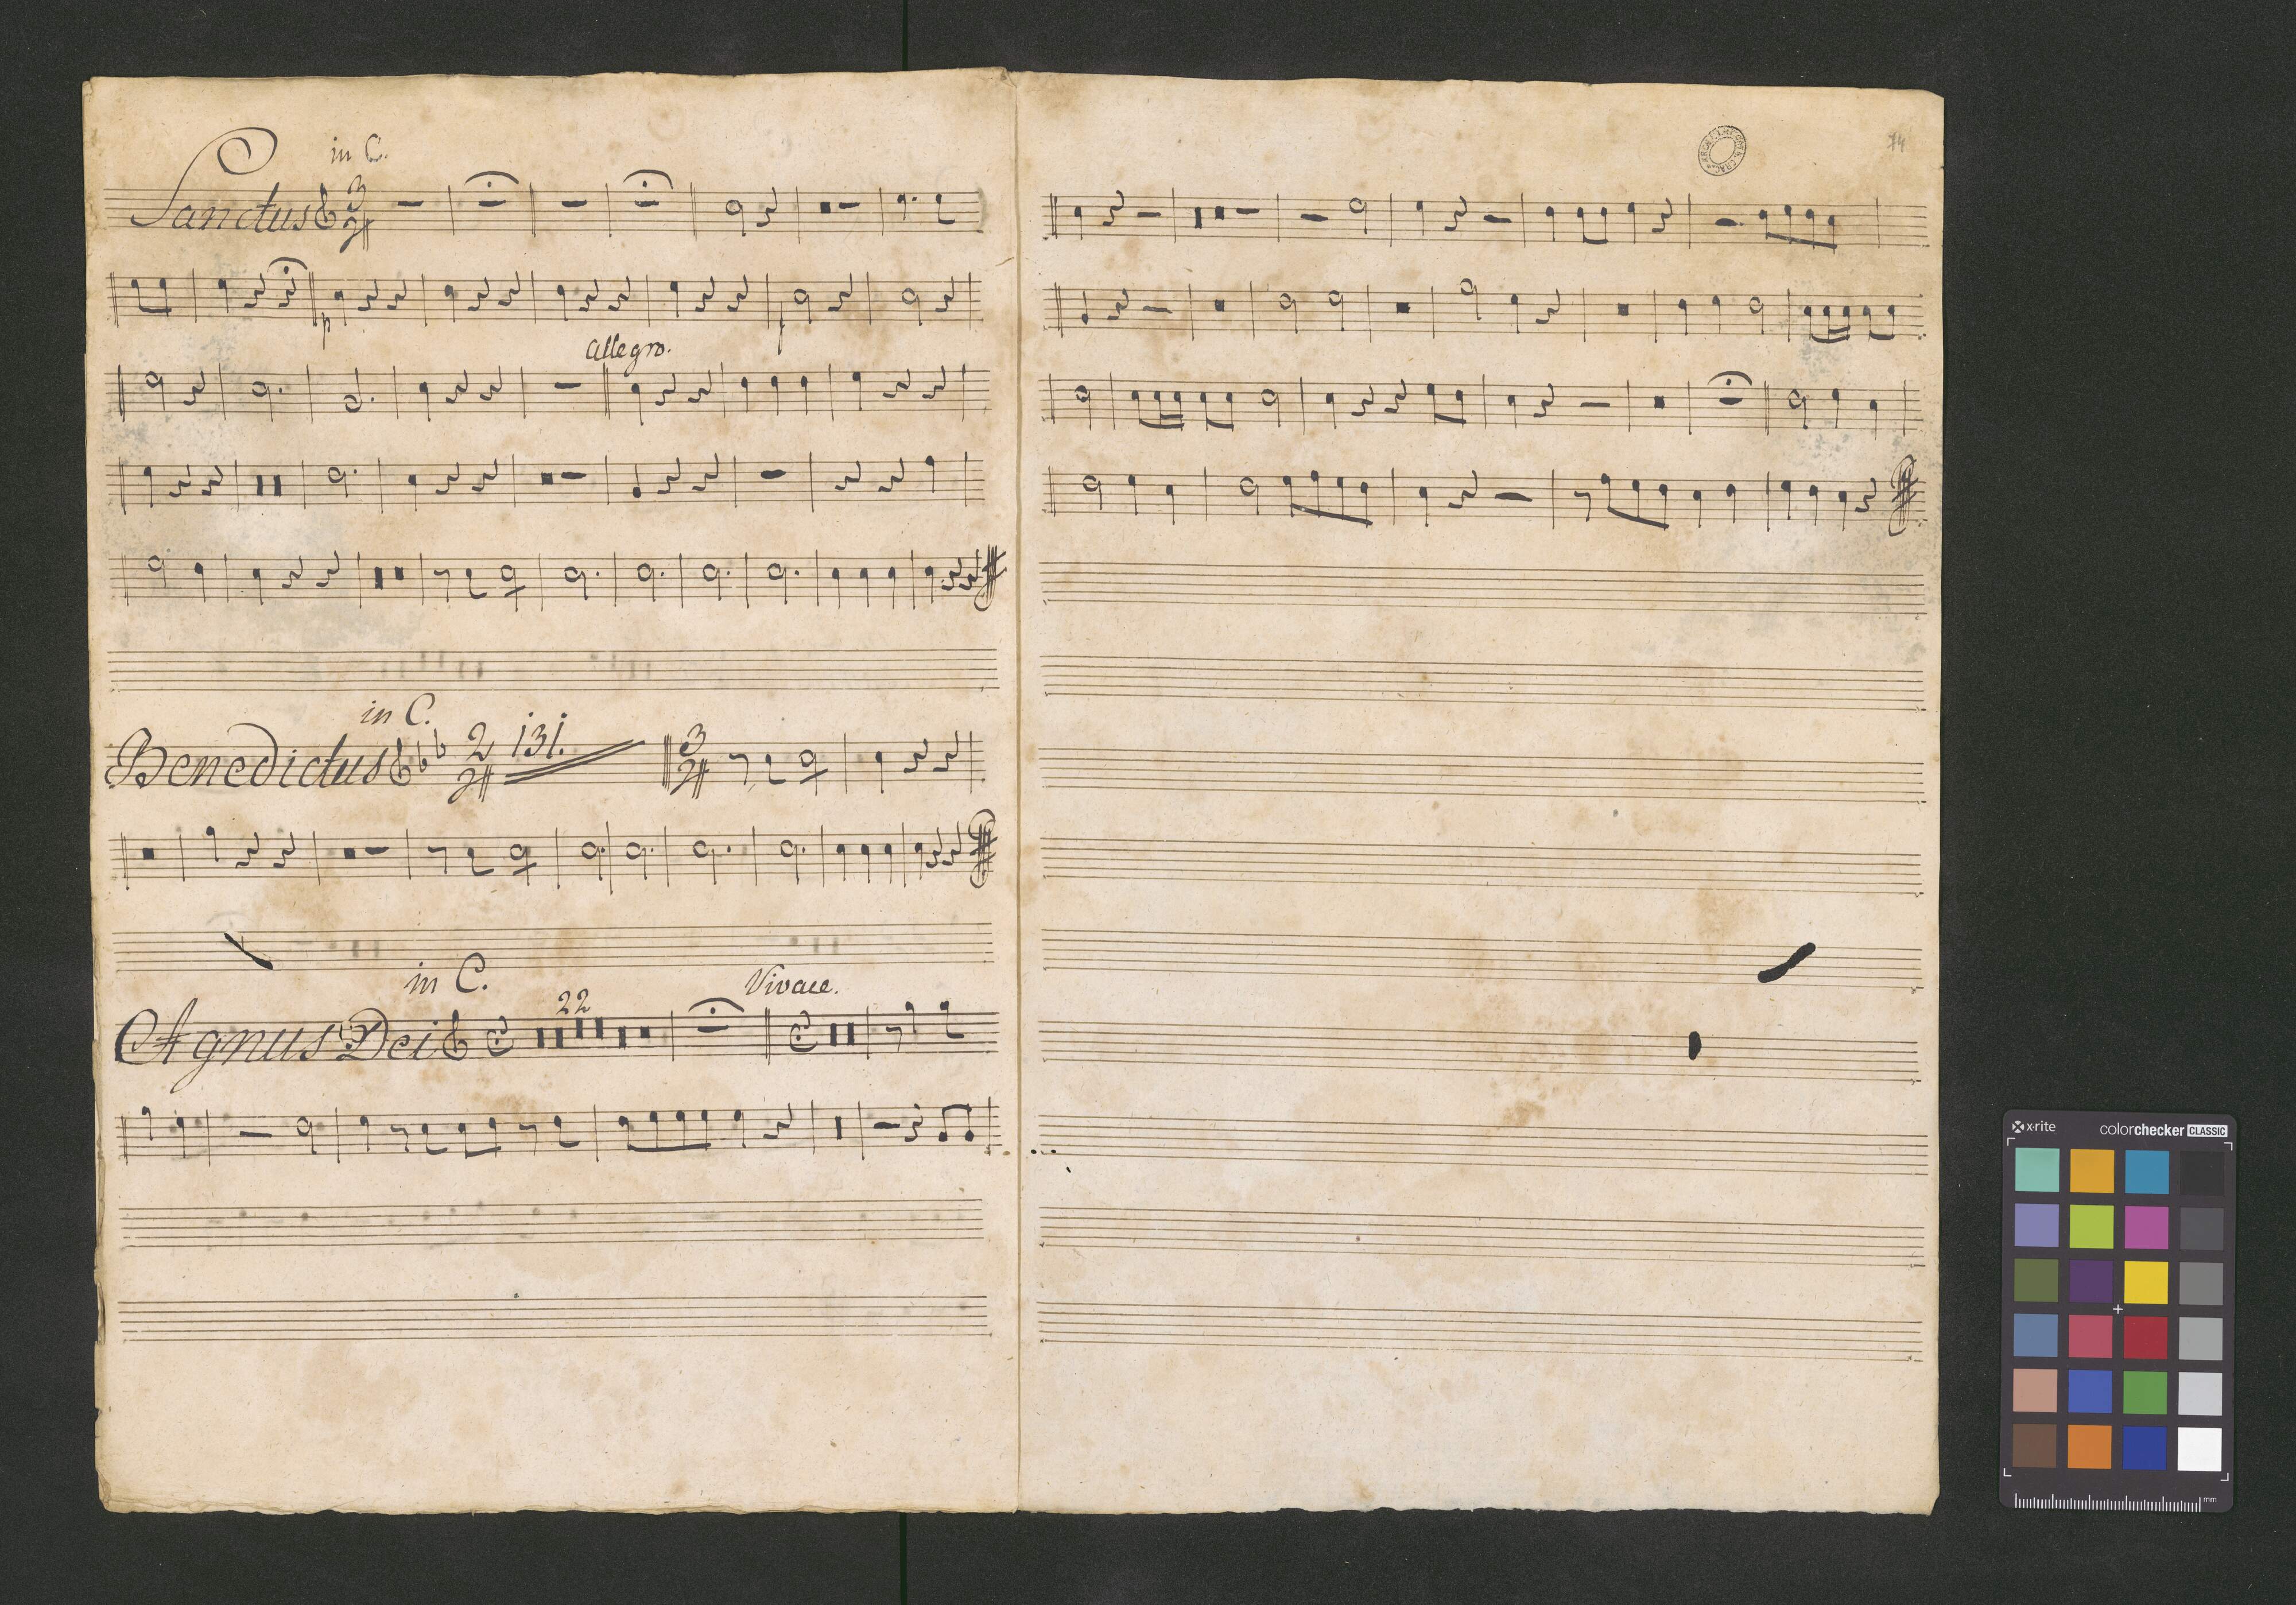 in C.
Sanctus 3 4
p f
Allegro.
in C.
Benedictus 2 4 131. 3 4
in C. Vivace.
Agnus Dei 22
74
x-rite colorchecker CLASSIC
mm